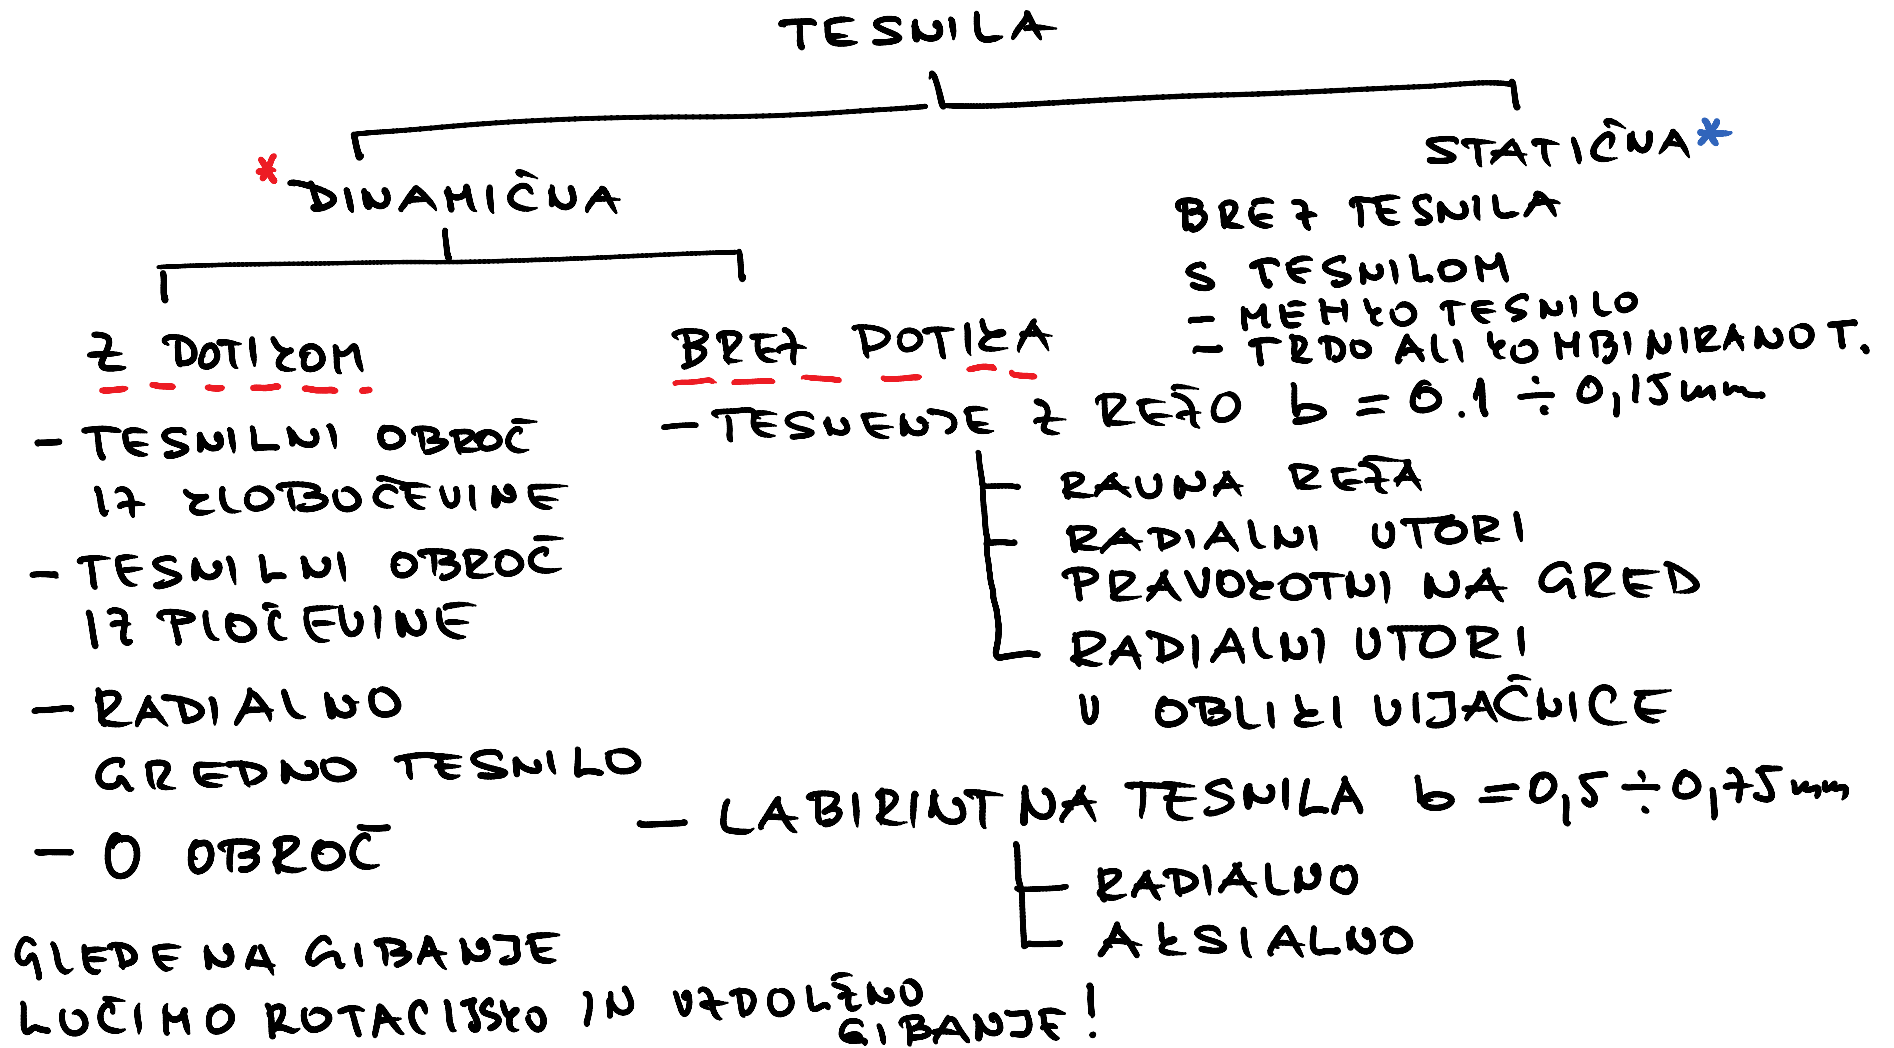 TESNILA
* DINAMIČNA
STATIČNA *
BREZ TESNILA
S TESNILOM
- MEHKO TESNILO
- TRDO ALI KOMBINIRANO T.
Z DOTIKOM
- TESNILNI OBROČ
IZ KLOBOČEVINE
- TESNILNI OBROČ
IZ PLOČEVINE
- RADIALNO
GREDNO TESNILO
- O OBROČ
BREZ DOTIKA
- TESNENJE Z REŽO b = 0.1 ÷ 0,15 mm
RAVNA REŽA
RADIALNI UTORI
PRAVOKOTNI NA GRED
RADIALNI UTORI
V OBLIKI VIJAČNICE
- LABIRINTNA TESNILA b = 0,5 ÷ 0,75 mm
RADIALNO
AKSIALNO
GLEDE NA GIBANJE
LOČIMO ROTACIJSKO IN VZDOLŽNO
GIBANJE!